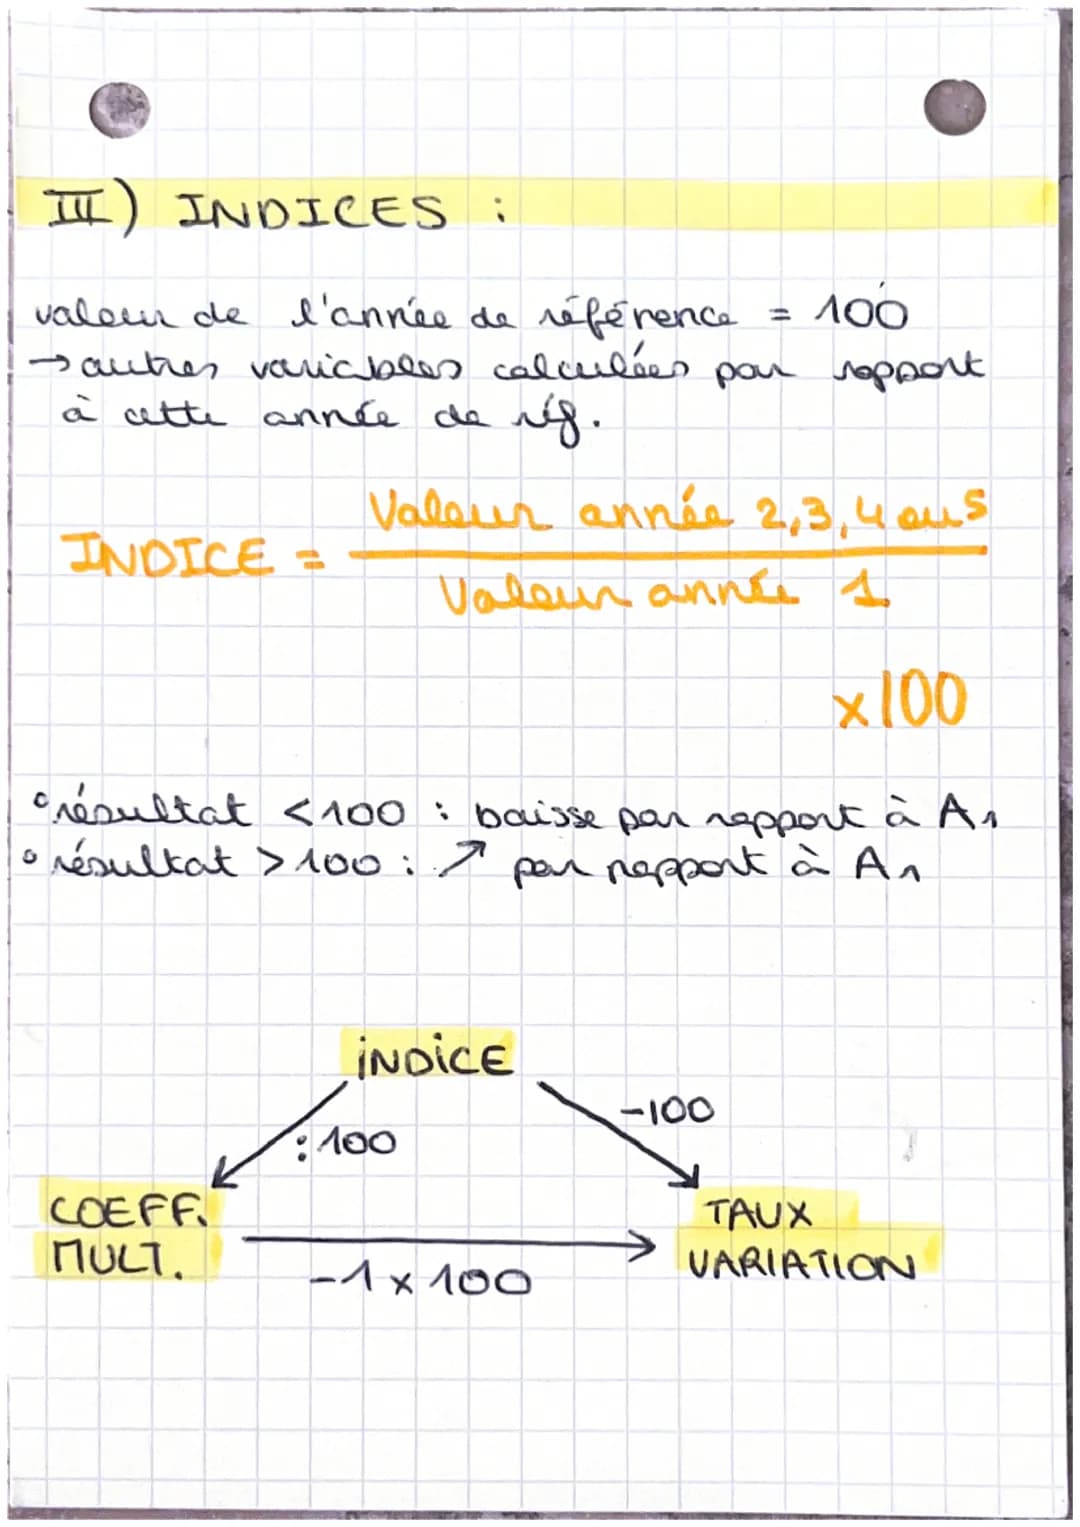 III) INDICES :
valeur de l'année de référence = 100
→ autres variables calculées par rapport
à cette année de réf.
INDICE = Valeur année 2,3,4 ou 5
Valeur année 1
x100
° résultat < 100 : baisse par rapport à A1
° résultat > 100 : ↗ par rapport à A1
INDICE
-100
: 100
COEFF.
MULT.
TAUX
VARIATION
-1 x 100